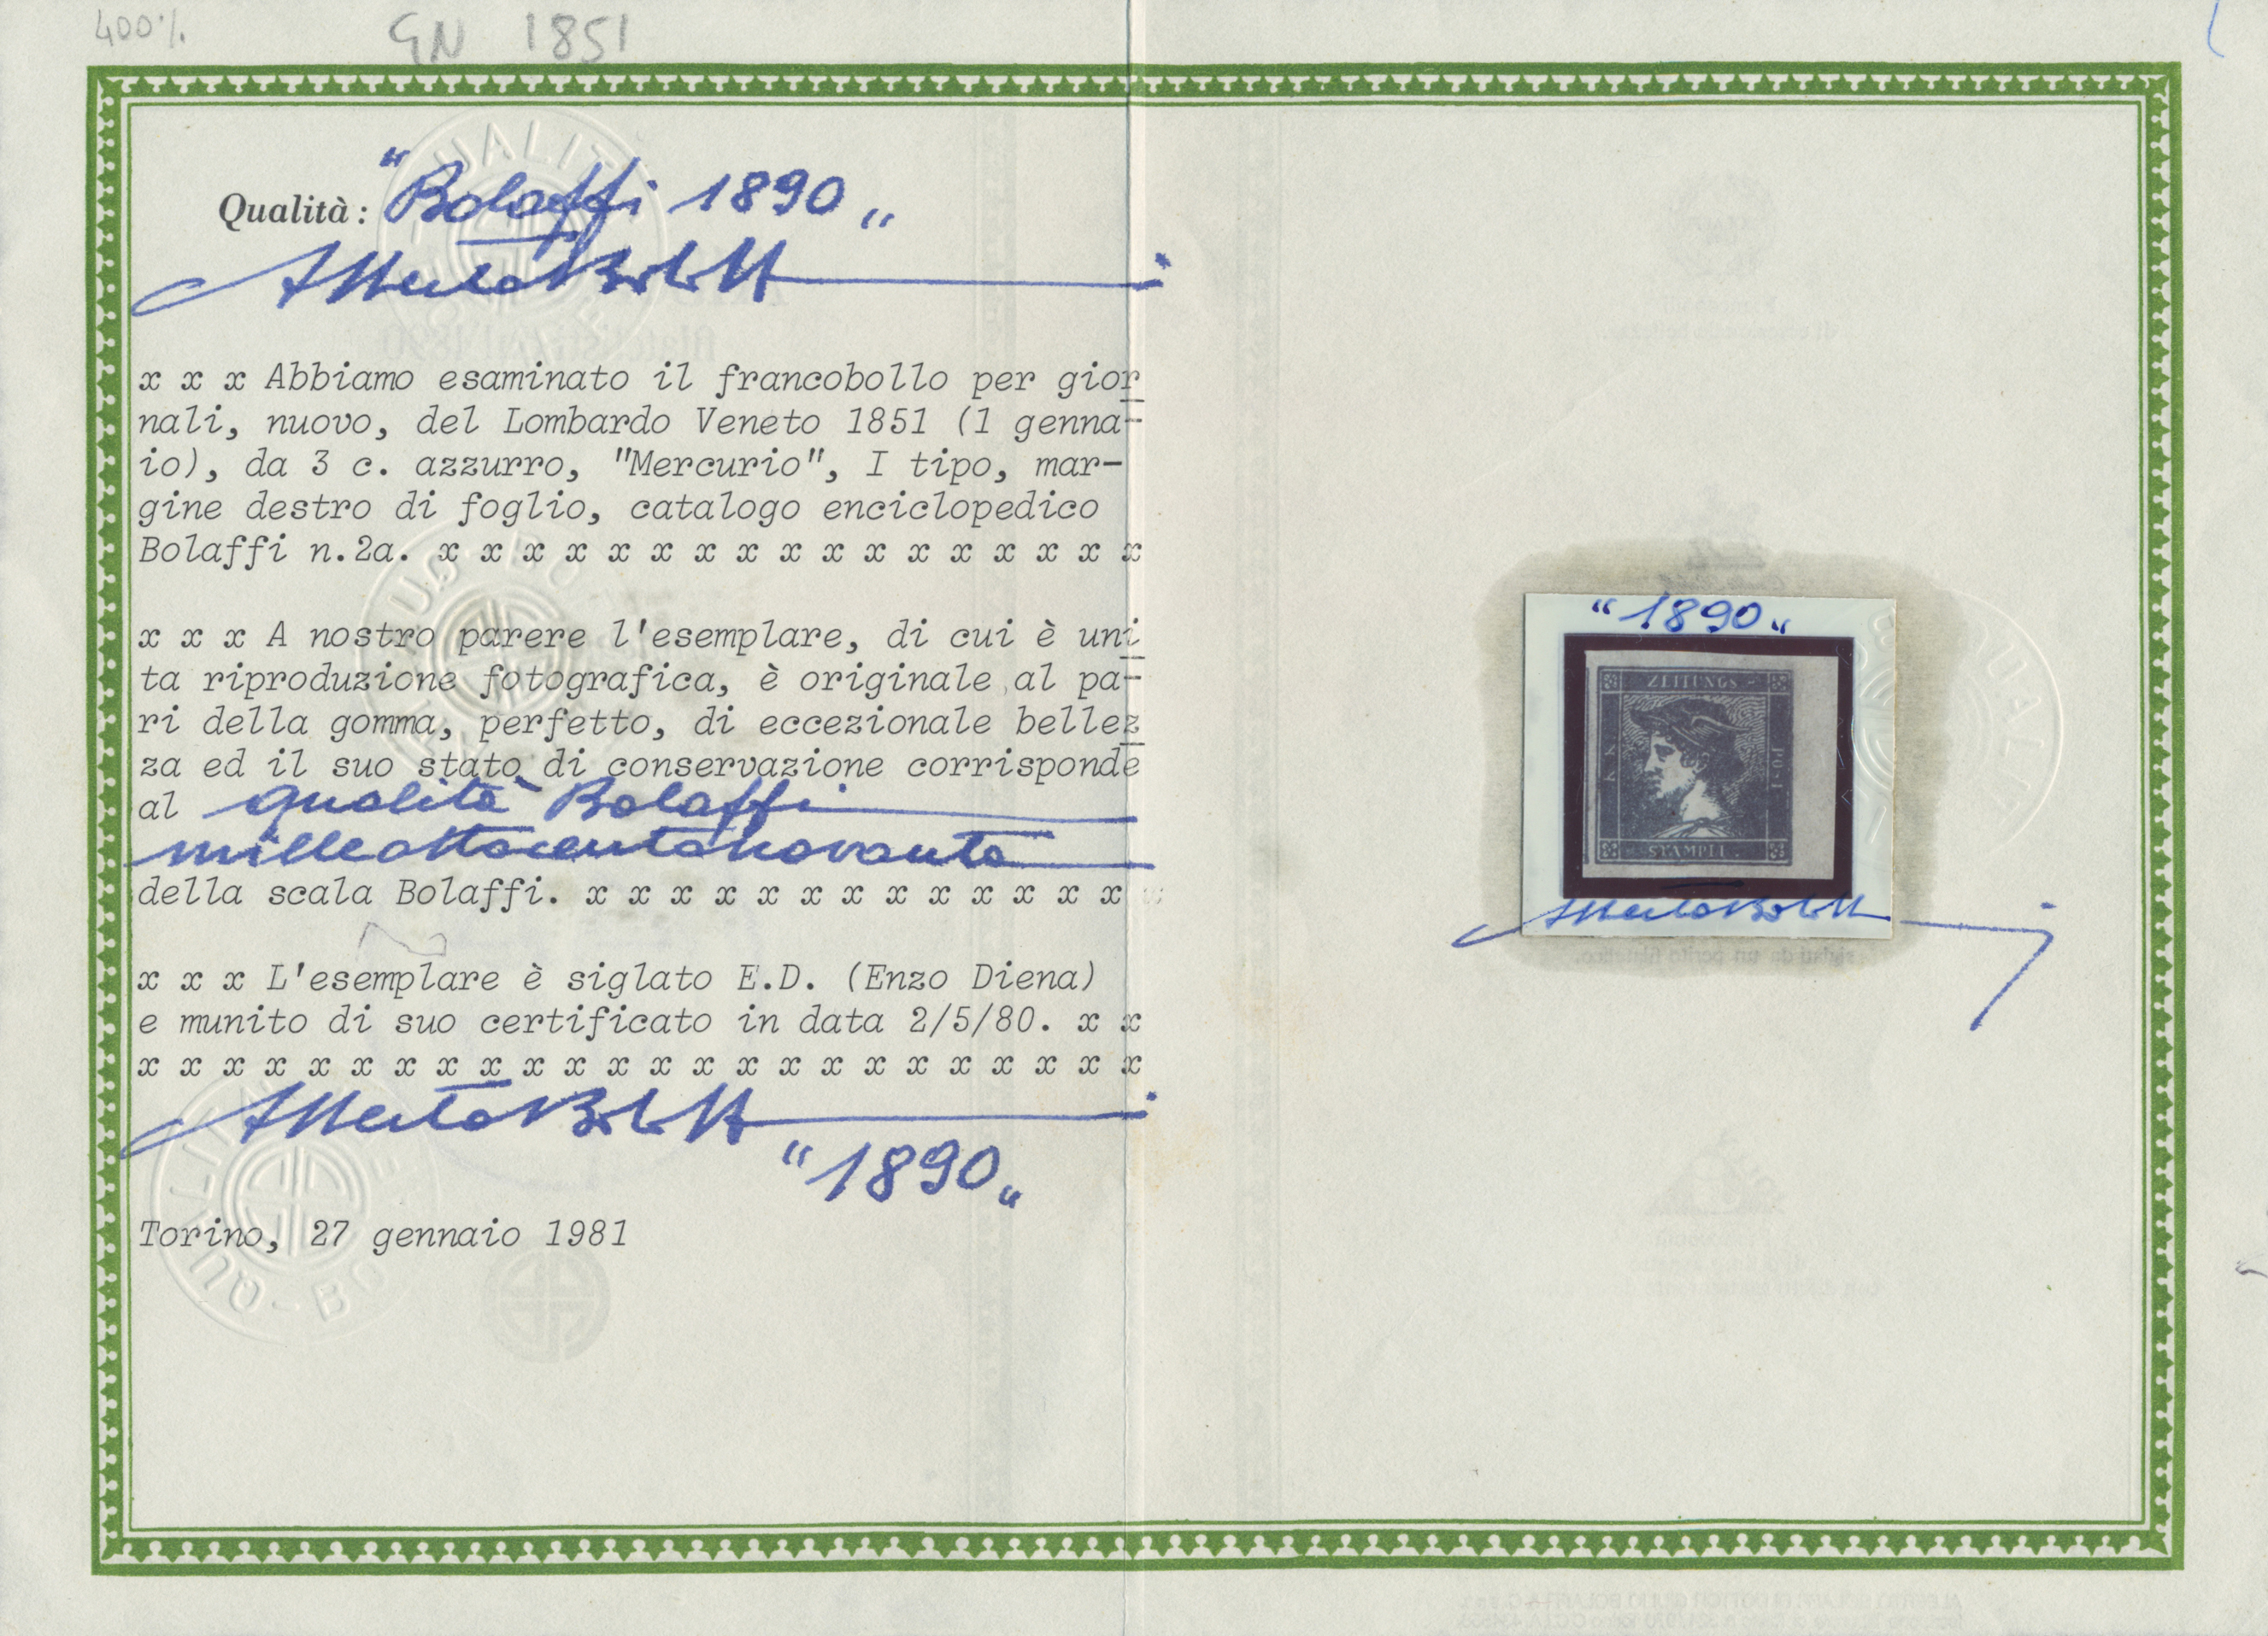 400%
GN 1851
Qualità: "Bolaffi 1890„
Alberto Bolaffi
x x x Abbiamo esaminato il francobollo per gior
nali, nuovo, del Lombardo Veneto 1851 (1 genna-
io), da 3 c. azzurro, "Mercurio", I tipo, mar-
gine destro di foglio, catalogo enciclopedico
Bolaffi n.2a. x x x x x x x x x x x x x x x x x
x x x A nostro parere l'esemplare, di cui è uni
ta riproduzione fotografica, è originale al pa-
ri della gomma, perfetto, di eccezionale bellez
za ed il suo stato di conservazione corrisponde
al qualità Bolaffi
milleottocentonovanta
della scala Bolaffi. x x x x x x x x x x x x x
x x x L'esemplare è siglato E.D. (Enzo Diena)
e munito di suo certificato in data 2/5/80. x x
x x x x x x x x x x x x x x x x x x x x x x x x
Alberto Bolaffi
"1890„
Torino, 27 gennaio 1981
"1890„
ZEITUNGS
K.K.
POST
STÄMPEL
Alberto Bolaffi